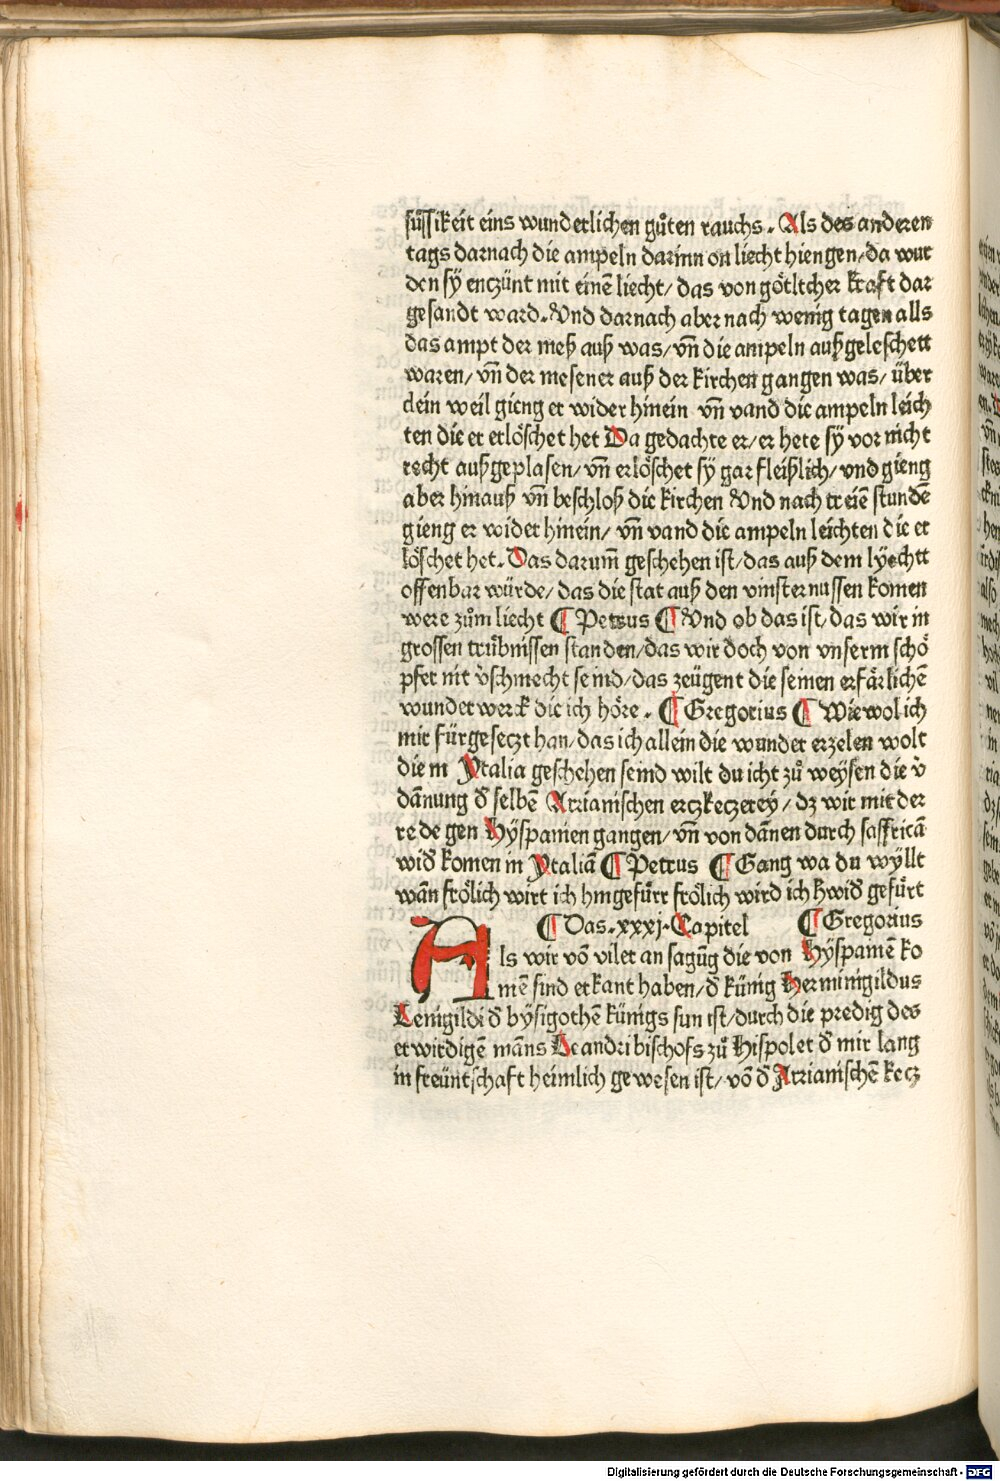 süſſikeit eins wunderlichen gůten rauchs. Als des anderen
tags darnach die ampeln darinn on liecht hiengen/da wur
den sÿ enczünt mit einē liecht/ das von götltcher kraft dar
gesandt ward. Vnd darnach aber nach wenig tagen alls
das ampt der meß auß was/ vn̄ die ampeln außgeleschett
waren/ vn̄ der mesener auß der kirchen gangen was/ über
clein weil gieng er wider hinein vn̄ vand die ampeln leich
ten die er erlöschet het Da gedachte er/ er hete sÿ vor nicht
recht außgeplasen/ vn̄ erlöschet sÿ gar fleißlich/ vnd gieng
aber hinauß vn̄ beschloß die kirchen Vnd nach treiē stundē
gieng er wider hinein/ vn̄ vand die ampeln leichten die er
löschet het. Das darum̄ geschehen ist/das auß dem lÿechtt
offenbar würde/ das die stat auß den vinsternussen komen
were zům liecht ¶ Petrus ¶ Vnd ob das ist/ das wir in
grossen trübnissen standen/das wir doch von vnserm schö
pfer nit v̓schmecht seind/das zeügent die seinen erfärlichē
wunderwerck die ich höre. ¶ Gregorius ¶ Wiewol ich
mir fürgeseczt han/das ich allein die wunder erzelen wolt
die in Ytalia geschehen seind wilt du icht zů weÿsen die v̓
dānung d̓ selbē Arrianischen erczkeczereÿ / dz wir mit der
re de gen Hÿspanien gangen/ vn̄ von dānen durch saffricā
wid̓ komen in Ytaliā ¶ Petrus ¶ Gang wa du wÿllt
wān frölich wirt ich hingefürr frölich wird ich hwid̓ gefürt
¶ Das .xxxj. Capitel ¶ Gregorius
Als wir vō viler an sagūg die von Hÿspaniē ko
mē sind erkant haben/ d̓ künig Herminigildus
Lenigildi d̓ bÿsigothē künigs sun ist/durch die predig des
erwirdigē māns Leandri bischofs zů Hispolet d̓ mir lang
in freüntschaft heimlich gewesen ist/ vō d̓ Arrianischē kecz
Digitalisierung gefördert durch die Deutsche Forschungsgemeinschaft - DFG